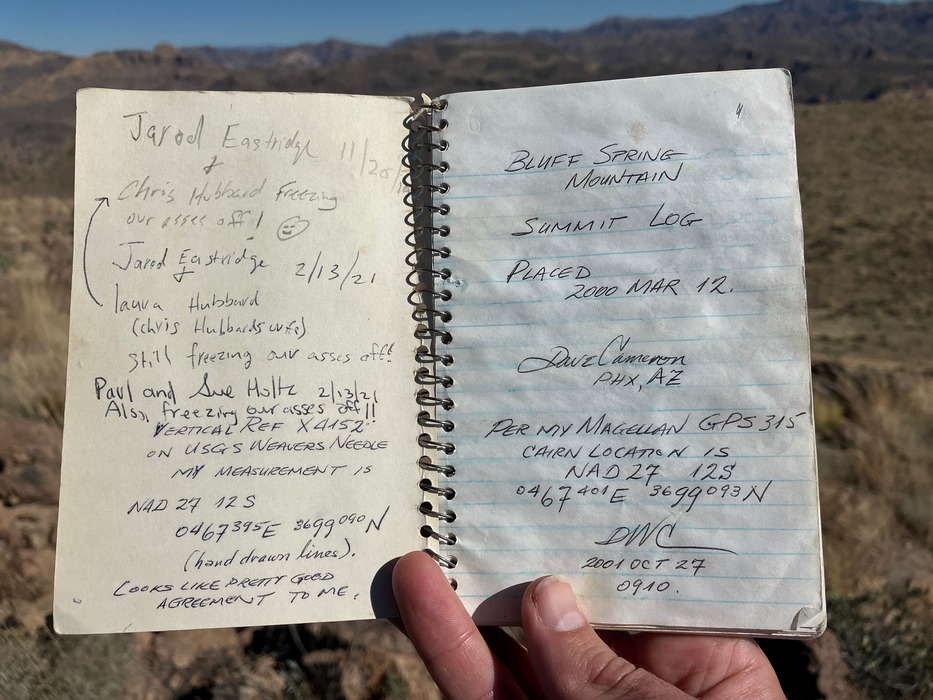 Jarod Eastridge 11/20/
+
Chris Hubbard Freezing
our asses off! ☺
Jarod Eastridge 2/13/21
+
laura Hubbard
(chris Hubbards wife)
still freezing our asses off!!
Paul and Sue Holtz 2/13/21
Also, freezing our asses off!!
VERTICAL REF X4152
ON USGS WEAVERS NEEDLE
MY MEASUREMENT IS
NAD 27 12 S
0467395E 3699090N
(hand drawn lines).
LOOKS LIKE PRETTY GOOD
AGREEMENT TO ME.
BLUFF SPRING
MOUNTAIN
SUMMIT LOG
PLACED
2000 MAR 12.
Dave Cameron
PHX, AZ
PER MY MAGELLAN GPS 315
CAIRN LOCATION IS
NAD 27 12S
0467401E 3699093N
DWC
2001 OCT 27
0910.